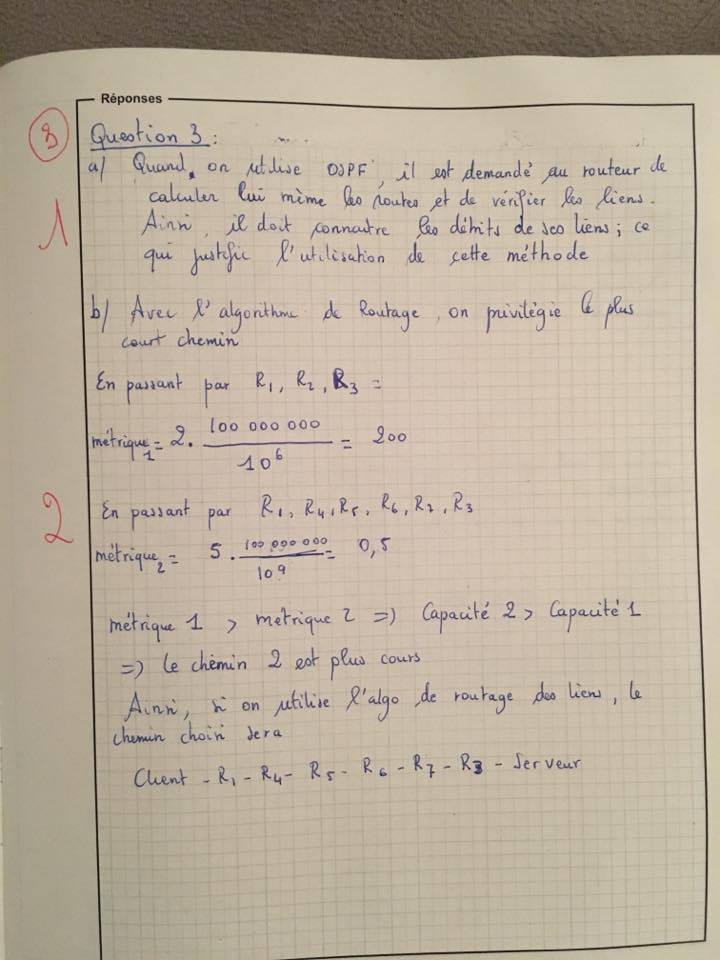 Réponses
3
Question 3 :
a) Quand on utilise OSPF, il est demandé au routeur de
1
calculer lui même les routes et de vérifier les liens.
Ainsi, il doit connaitre les débits de ses liens ; ce
qui justifie l'utilisation de cette méthode
b) Avec l'algorithme de Routage, on privilégie le plus
court chemin
En passant par R1, R2, R3 =
métrique1 = 2. 100 000 000 / 10^6 = 200
2
En passant par R1, R4, R5, R6, R7, R3
métrique2 = 5 . 100 000 000 / 10^9 = 0,5
métrique 1 > métrique 2 => Capacité 2 > Capacité 1
=> le chemin 2 est plus cours
Ainsi, si on utilise l'algo de routage des liens, le
chemin choisi sera
Client - R1 - R4 - R5 - R6 - R7 - R3 - Serveur